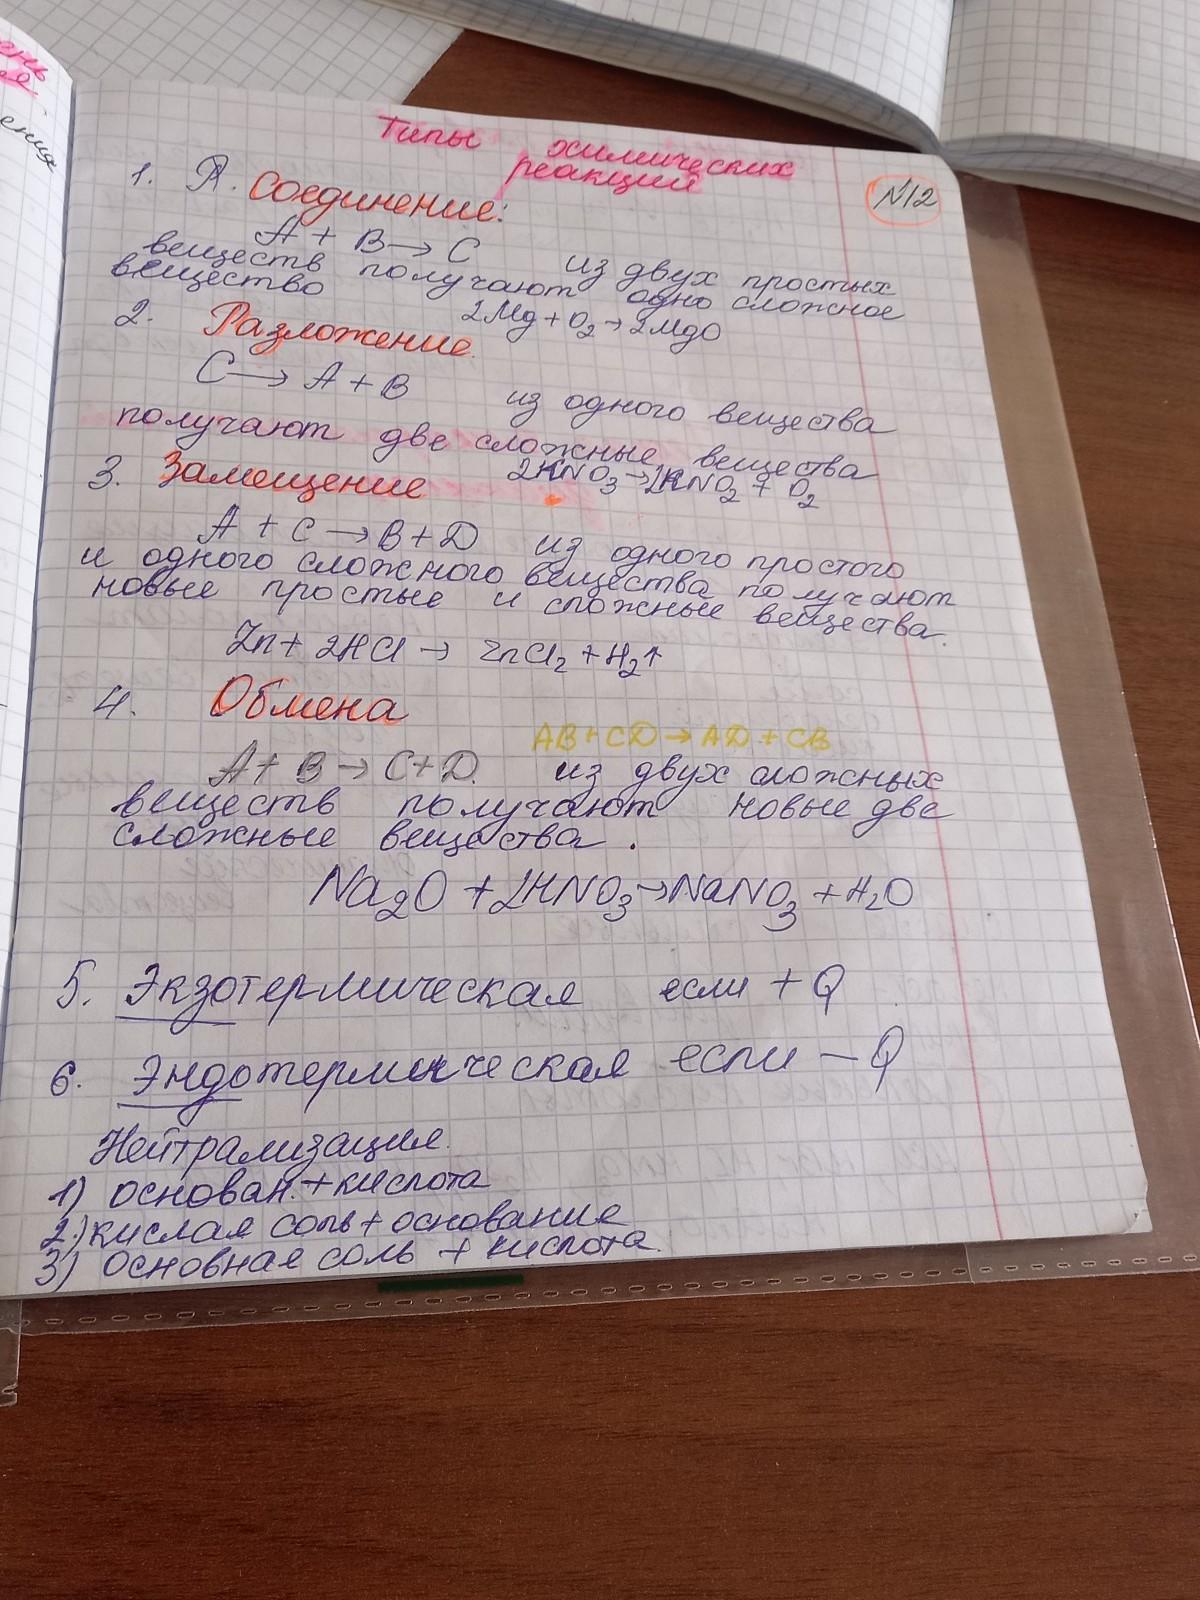 ень
я
ения
Типы химических
реакций
№12
1. Я. Соединение:
A + B → C из двух простых
веществ получают одно сложное
вещество 2Mg + O₂ → 2MgO
2. Разложение
C → A + B из одного вещества
получают две сложные вещества
2KNO₃ → 2KNO₂ + O₂
3. Замещение
A + C → B + D из одного простого
и одного сложного вещества получают
новые простые и сложные вещества
Zn + 2HCl → ZnCl₂ + H₂↑
4. Обмена
AB + CD → AD + CB
A + B → C + D. из двух сложных
веществ получают новые две
сложные вещества.
Na₂O + 2HNO₃ → NaNO₃ + H₂O
5. Экзотермическая если + Q
6. Эндотермическая если – Q
Нейтрализация.
1) основан. + кислота
2.) кислая соль + основание
3) основная соль + кислота.